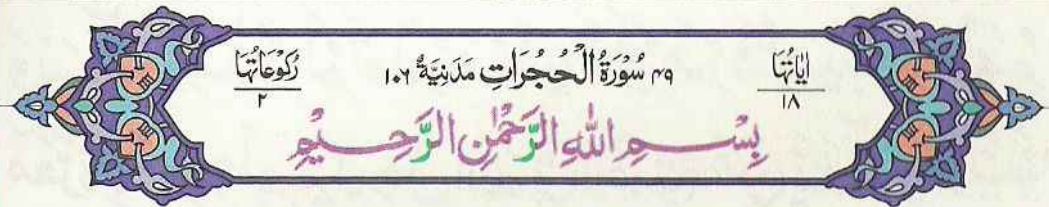 اٰيَاتُهَا ١٨ ٤٩ سُوْرَةُ الْحُجُرَاتِ مَدَنِيَّةٌ ١٠٦ رُكُوْعَاتُهَا ٢
بِسْمِ اللهِ الرَّحْمٰنِ الرَّحِيْمِ